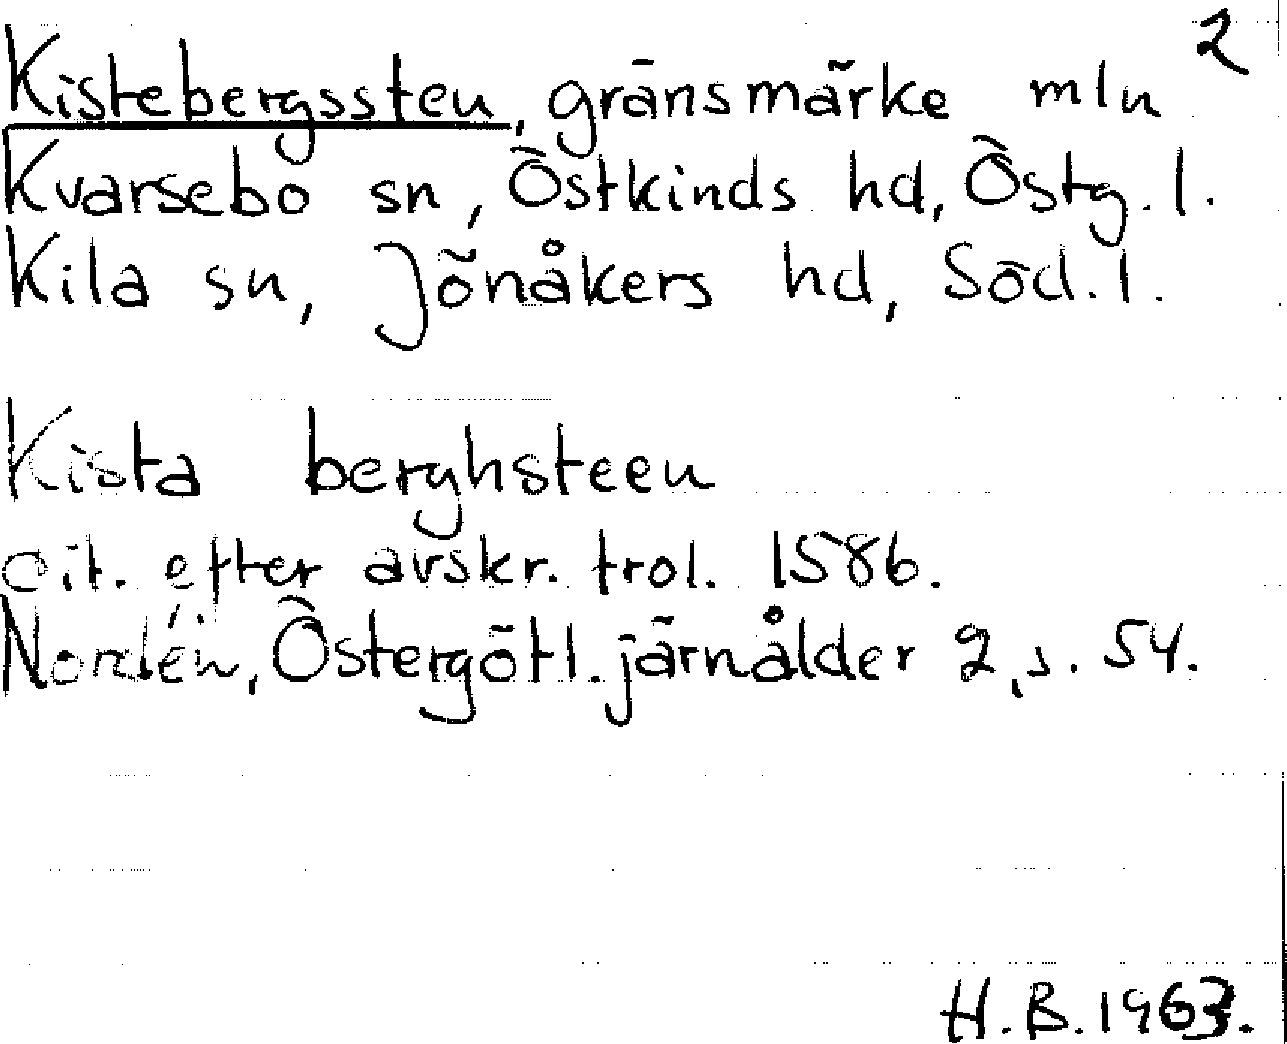 2
Kistebergssten, gränsmärke mln
Kvarsebo sn, Östkinds hd, Östg. l.
Kila sn, Jönåkers hd, Söd. l.
Kista berghsteen
cit. efter avskr. trol. 1586.
Nordén, Östergötl. järnålder 2, s. 54.
H. B. 1963.